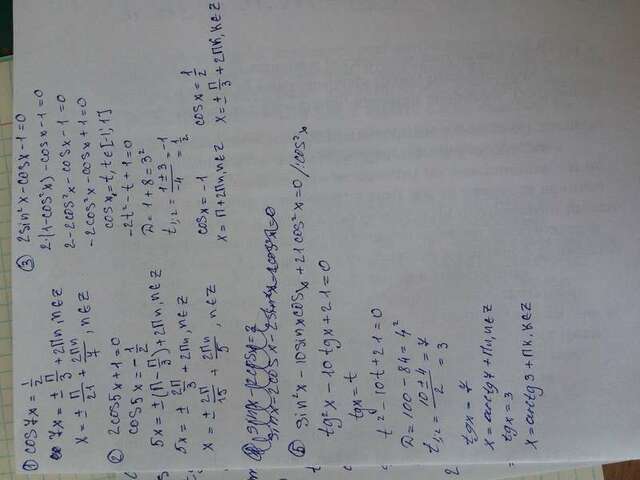 ① cos7x = 1/2
7x = ± П/3 + 2Пn, n∈Z
x = ± П/21 + 2Пn/7, n∈Z
② 2cos5x+1=0
cos5x = -1/2
5x = ±(П - П/3) + 2Пn, n∈Z
5x = ± 2П/3 + 2Пn, n∈Z
x = ± 2П/15 + 2Пn/5, n∈Z
③ 2sin²x - cosx - 1 = 0
2·(1-cos²x) - cosx - 1 = 0
2 - 2cos²x - cosx - 1 = 0
-2cos²x - cosx + 1 = 0
cosx = t, t∈[-1; 1]
-2t² - t + 1 = 0
D = 1 + 8 = 3²
t₁,₂ = (1 ± 3)/-4 = -1
= 1/2
cosx = -1
x = П + 2Пn, n∈Z
cosx = 1/2
x = ± П/3 + 2Пk, k∈Z
⑤ sin²x - 10sinxcosx + 21cos²x = 0 /:cos²x
tg²x - 10tgx + 21 = 0
tgx = t
t² - 10t + 21 = 0
D = 100 - 84 = 4²
t₁,₂ = (10 ± 4)/2 = 7
= 3
tgx = 7
x = arctg7 + Пn, n∈Z
tgx = 3
x = arctg3 + Пk, k∈Z